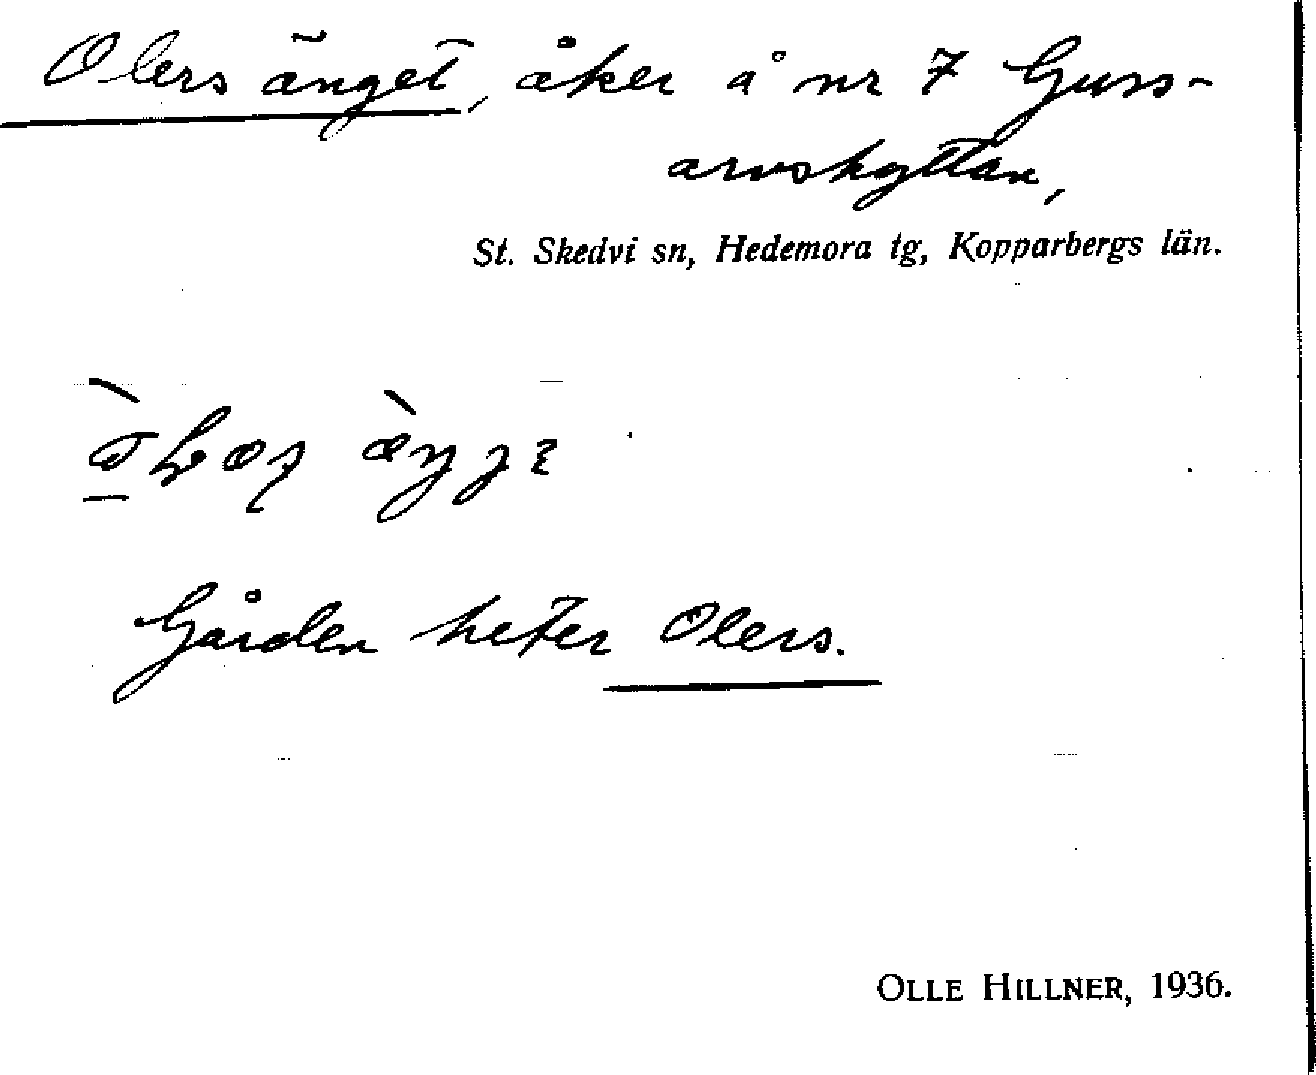 Olers änget, åker å nr 7 Guss-
arvshyttan,
St. Skedvi sn, Hedemora tg, Kopparbergs län.
Gården heter Olers.
OLLE HILLNER, 1936.